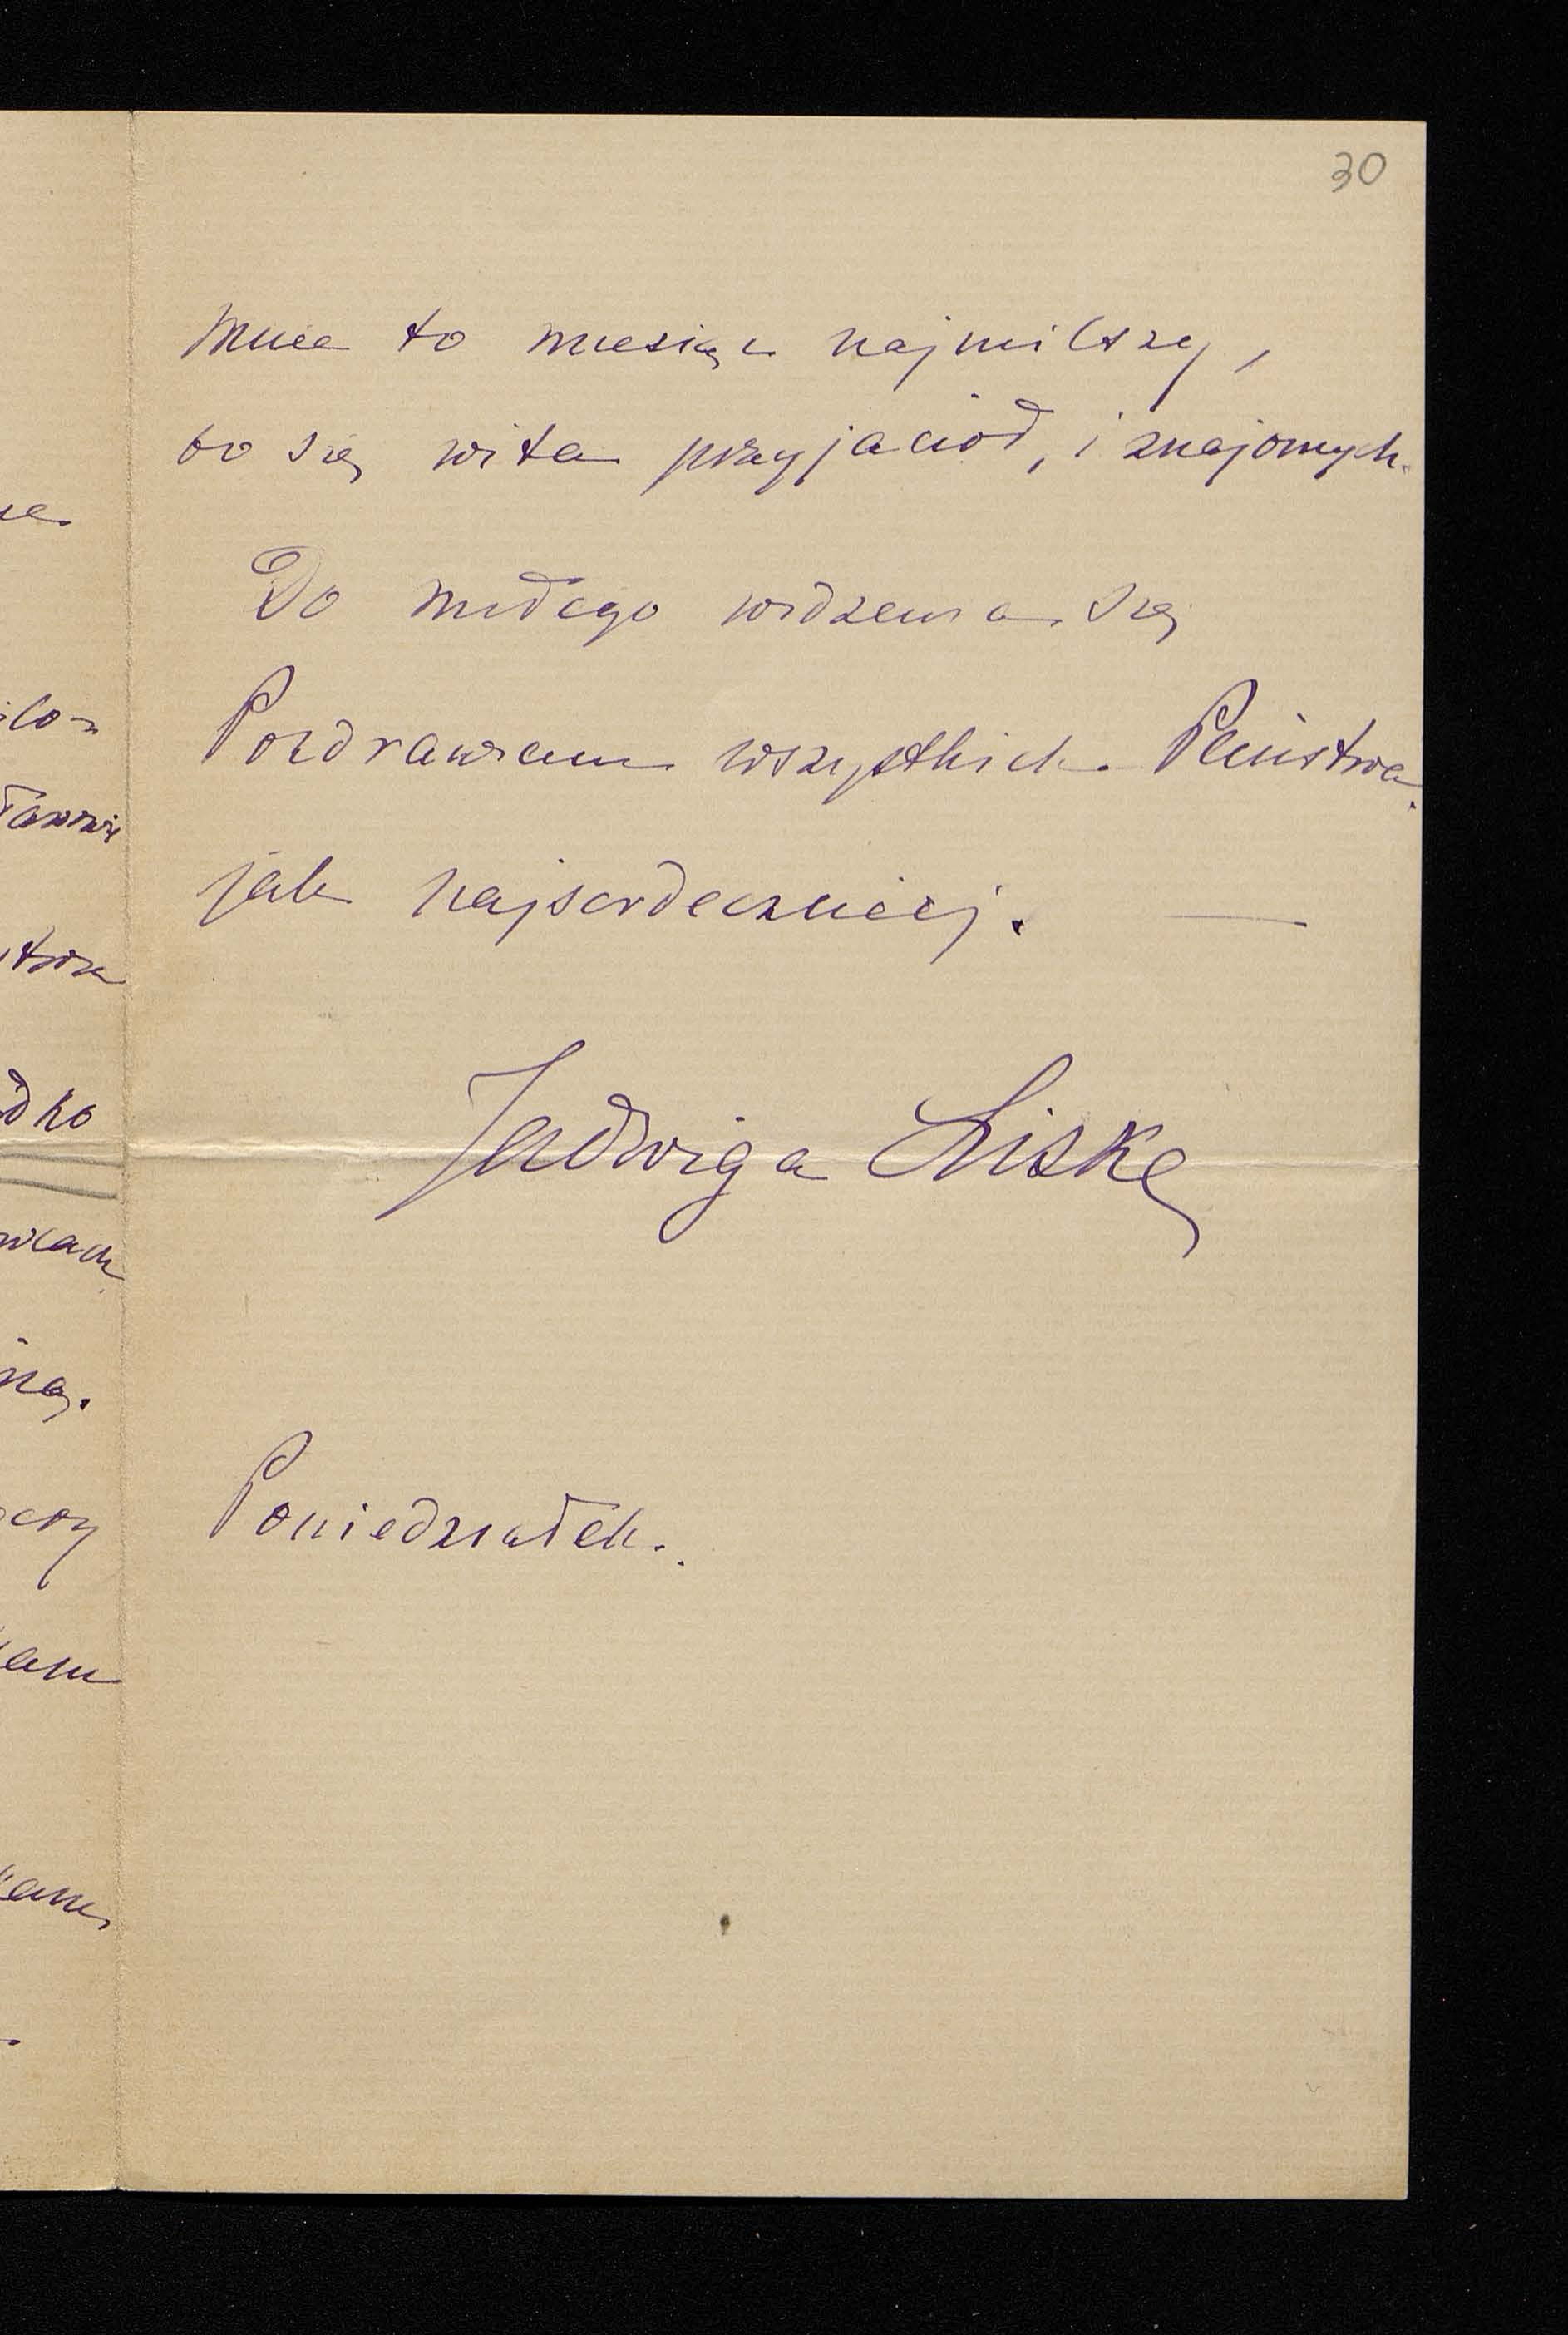 30
mnie to miesiąc najmilszy,
bo się wita przyjaciół, i znajomych.
Do miłego widzenia się
Pozdrawiam wszystkich Państwa
jak najserdeczniej. —
Jadwiga Liske
Poniedziałek.